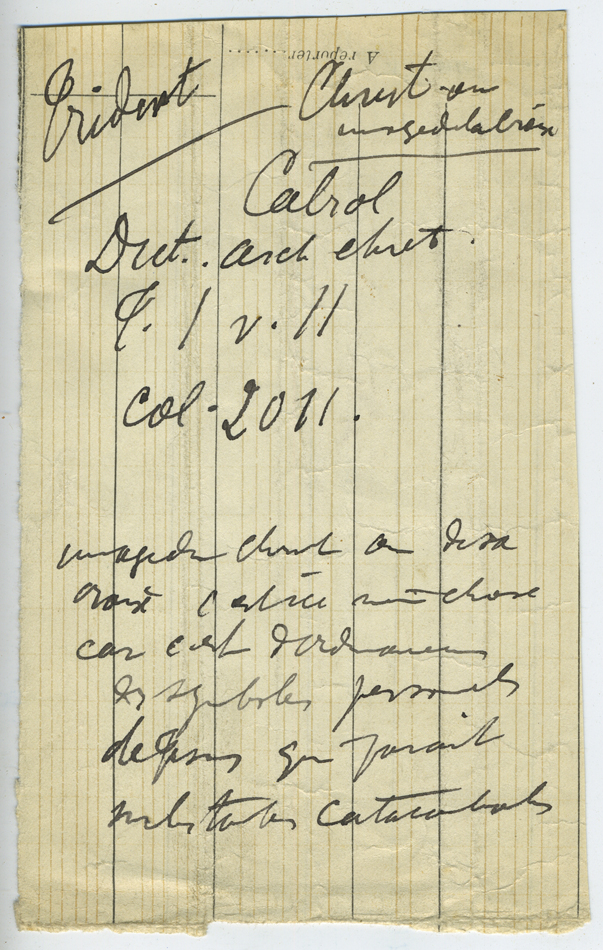 A reporter..........
Trident
Christ ou
image de la croix
Cabrol
Dict. arch chret.
T. 1 v. 11
col. 2011.
image du christ ou de sa
croix c'est même chose
car c'est d'ordinaire
des symboles personnels
de Jésus qui
catacombales